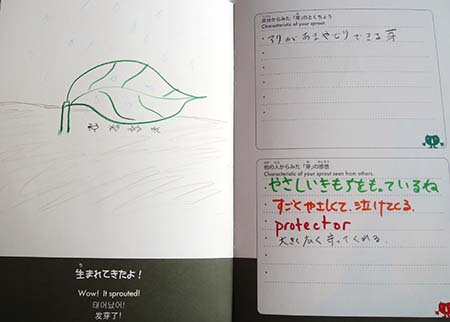 生まれてきたよ！
Wow! It sprouted!
태어났어!
发芽了!
自分からみた「芽」のとくちょう
Characteristic of your sprout
アリがあまやどりできる芽
他の人からみた「芽」の感想
Characteristic of your sprout seen from others.
やさしいきもちをもっているね
すごくやさしくて、泣けてくる。
protector
大きく広く守ってくれる